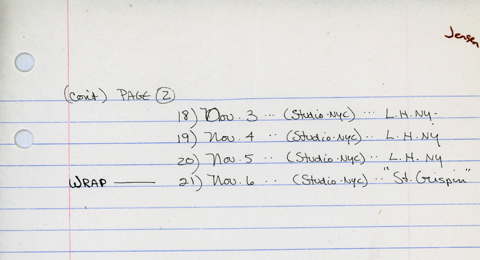 Jensen
(cont) PAGE 2
18) Nov. 3 ... (Studio-NYC) ... L.H. NY-
19) Nov. 4 .. (Studio-NYC) .. L.H. NY
20) Nov. 5 .. (Studio-NYC) .. L.H. NY
WRAP —— 21) Nov. 6 .. (Studio-NYC) .. "St. Crispin"